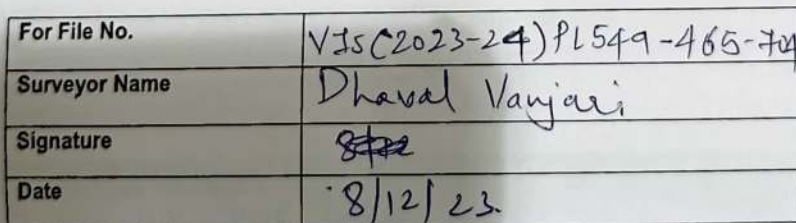 For File No. VIS(2023-24)PL549-465-704
Surveyor Name Dhaval Vanjari
Signature
Date 8/12/23.